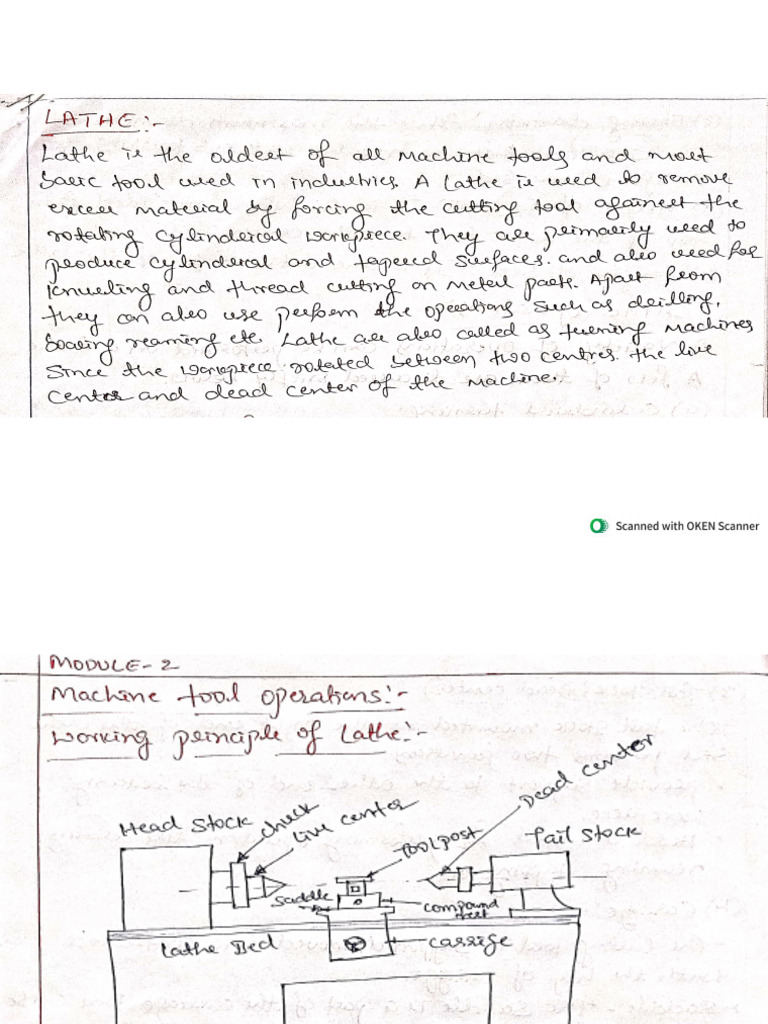 LATHE:-
Lathe is the oldest of all Machine tools and most
basic tool used in industries. A Lathe is used to remove
excess Material by forcing the cutting tool against the
rotating cylinderical workpiece. They are primarily used to
produce cylinderical and tapered surfaces. and also used for
knurling and thread cutting on Metal parts. Apart from
they can also use perform the operations such as drilling,
boaring reaming etc. Lathe are also called as turning Machines
Since the workpiece rotated between two centres. the live
center and dead center of the Machine.
Scanned with OKEN Scanner
MODULE-2
Machine tool operations:-
Working principle of Lathe:-
Dead center
Head Stock
Chuck
Live center
Toolpost
Tail Stock
Saddle
compound
rest
Lathe Bed
carrige